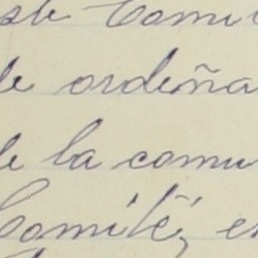 ste Comi
de ordeña
de la comu
Comité, e